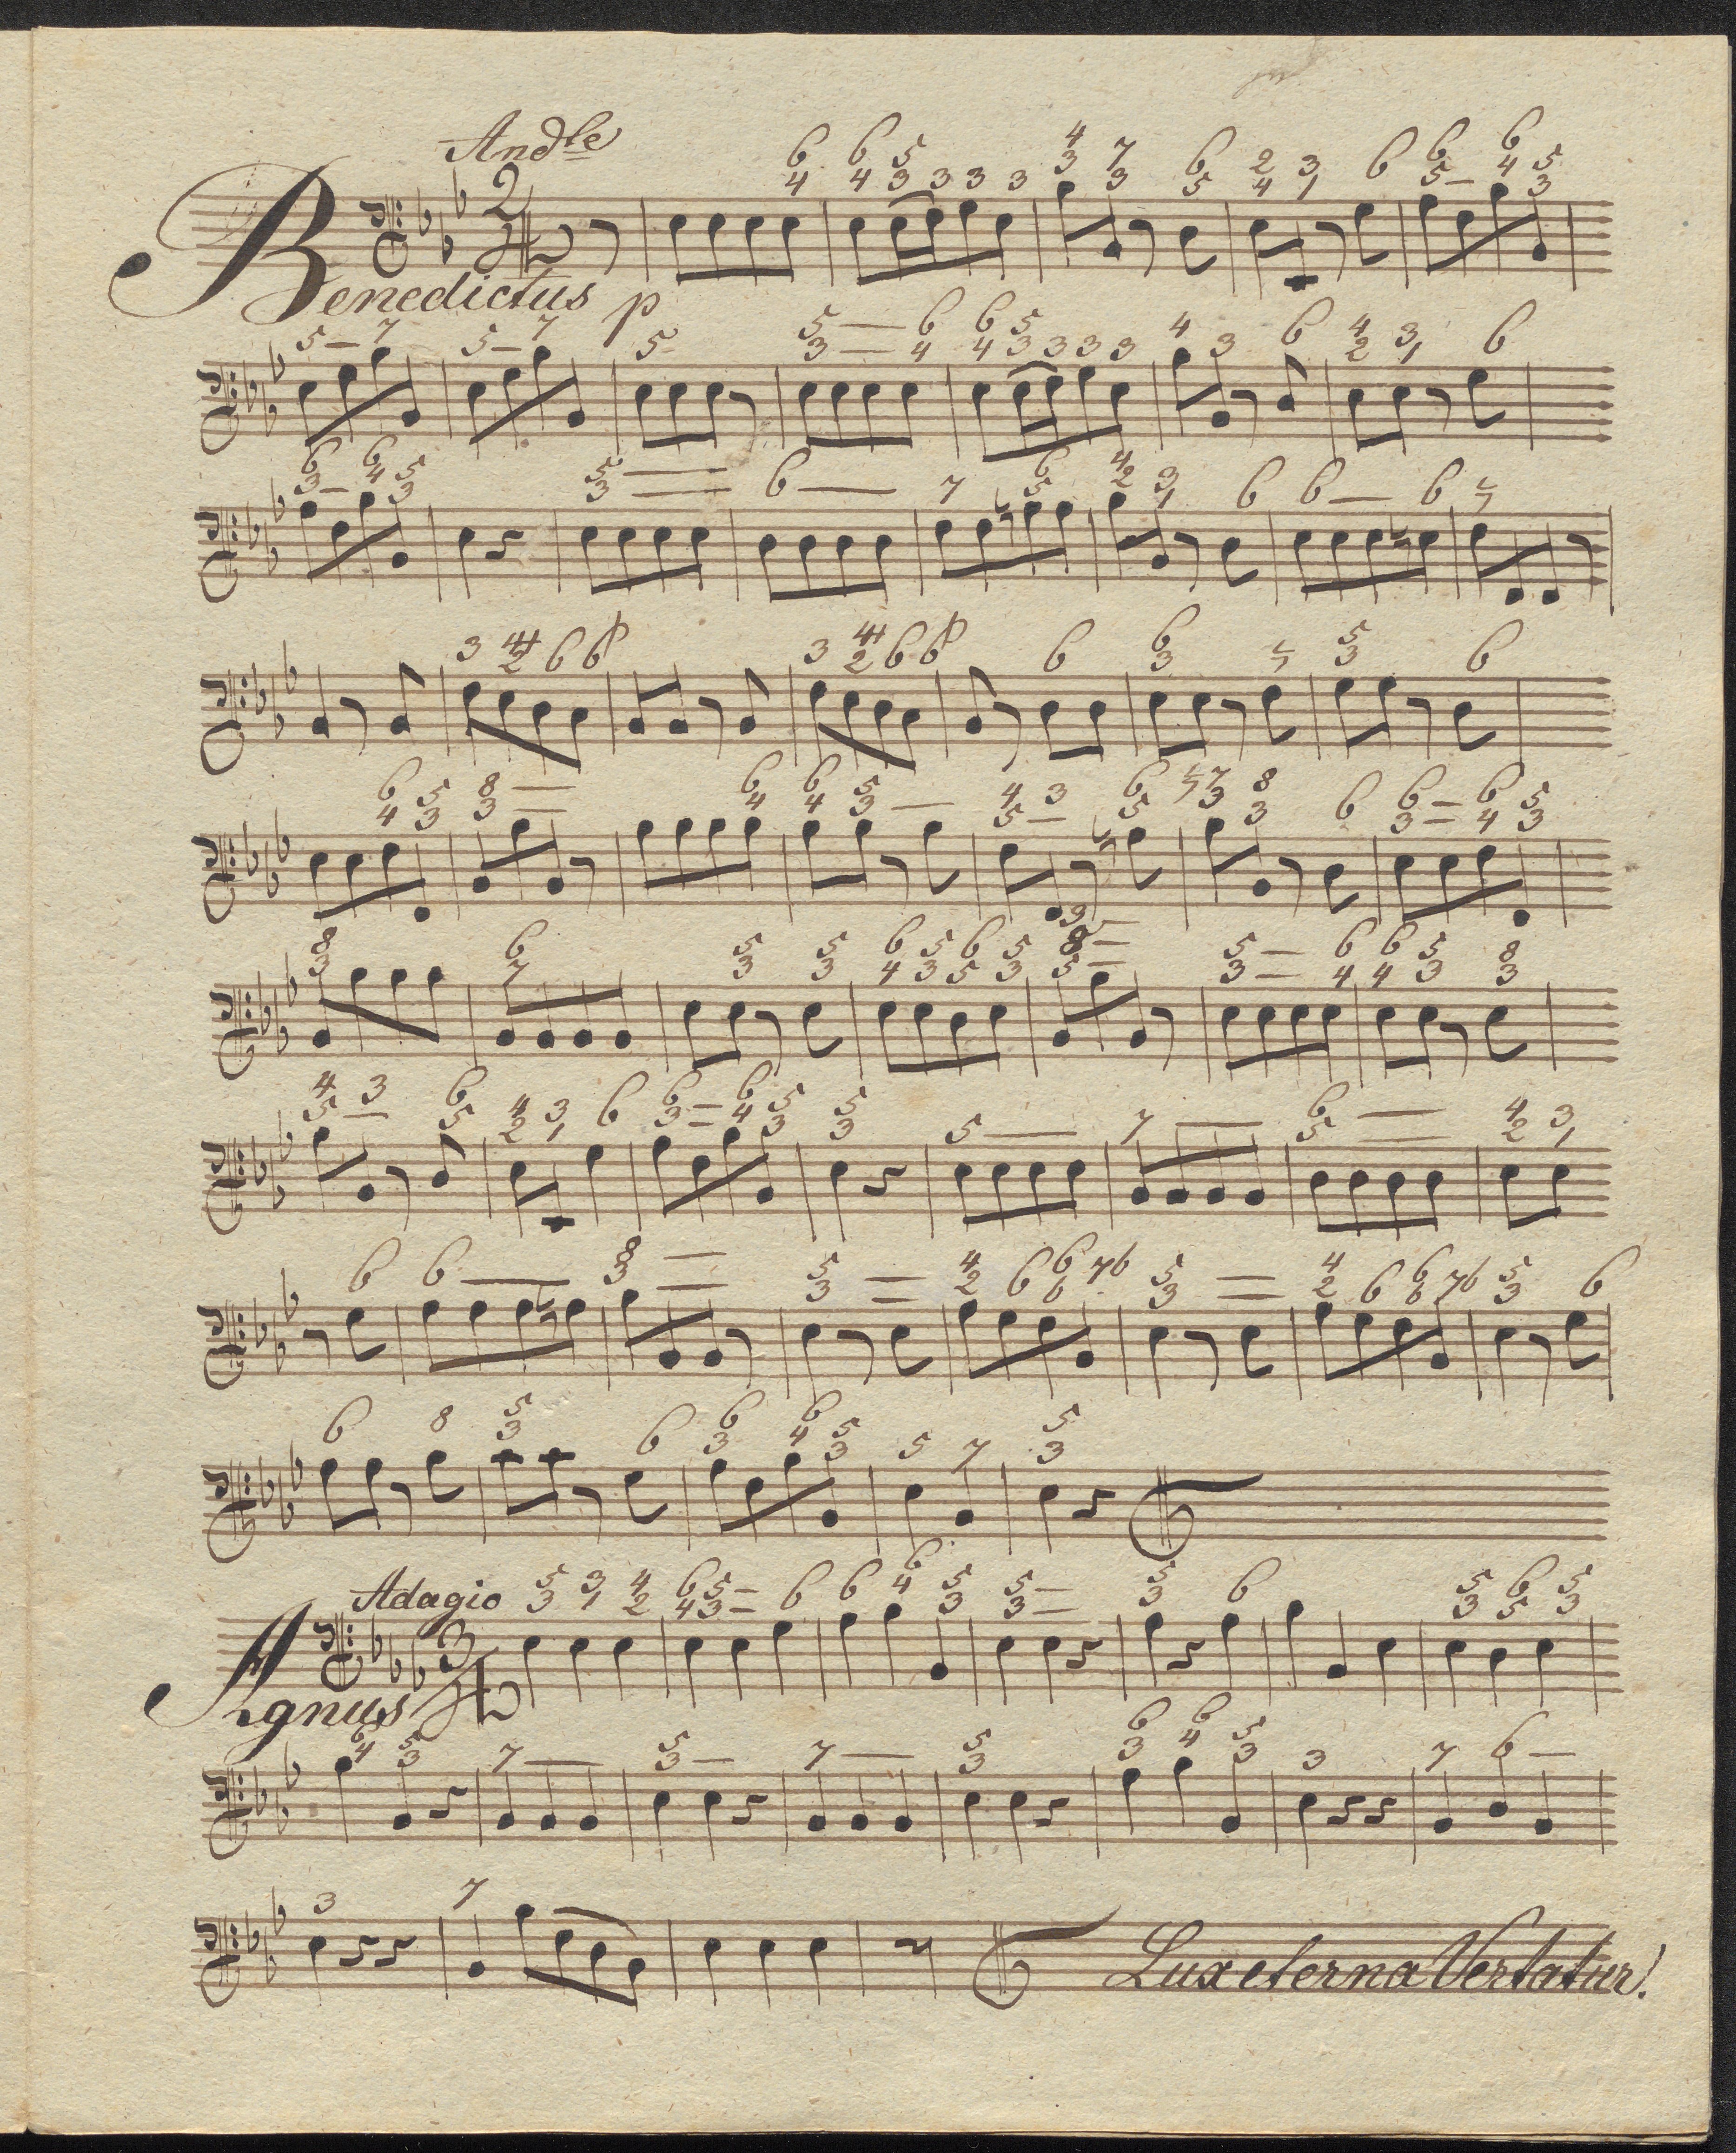 Andle
Benedictus p
Adagio
Agnus
Lux eterna Vertatur.